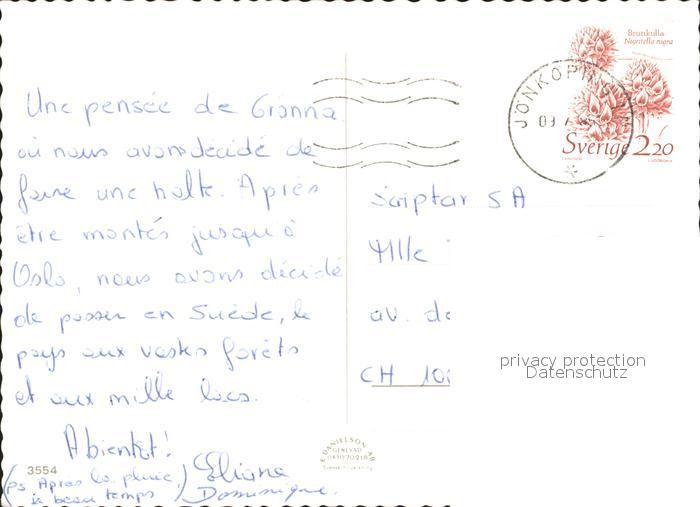 Une pensée de Gränna
où nous avons décidé de
faire une halte. Après
être montés jusqu'à
Oslo, nous avons décidé
de passer en Suède, le
pays aux vastes forêts
et aux mille lacs.
Abientôt!
Eliane
Dominique.
(ps Après la pluie,
le beau temps)
3554
E. DANIELSON AB
GENEVAD
0430/70218
Brunkulla
Nigritella nigra
JÖNKÖPING
Sverige 2.20
Scriptar SA
Mlle
av. de
CH 10
privacy protection
Datenschutz